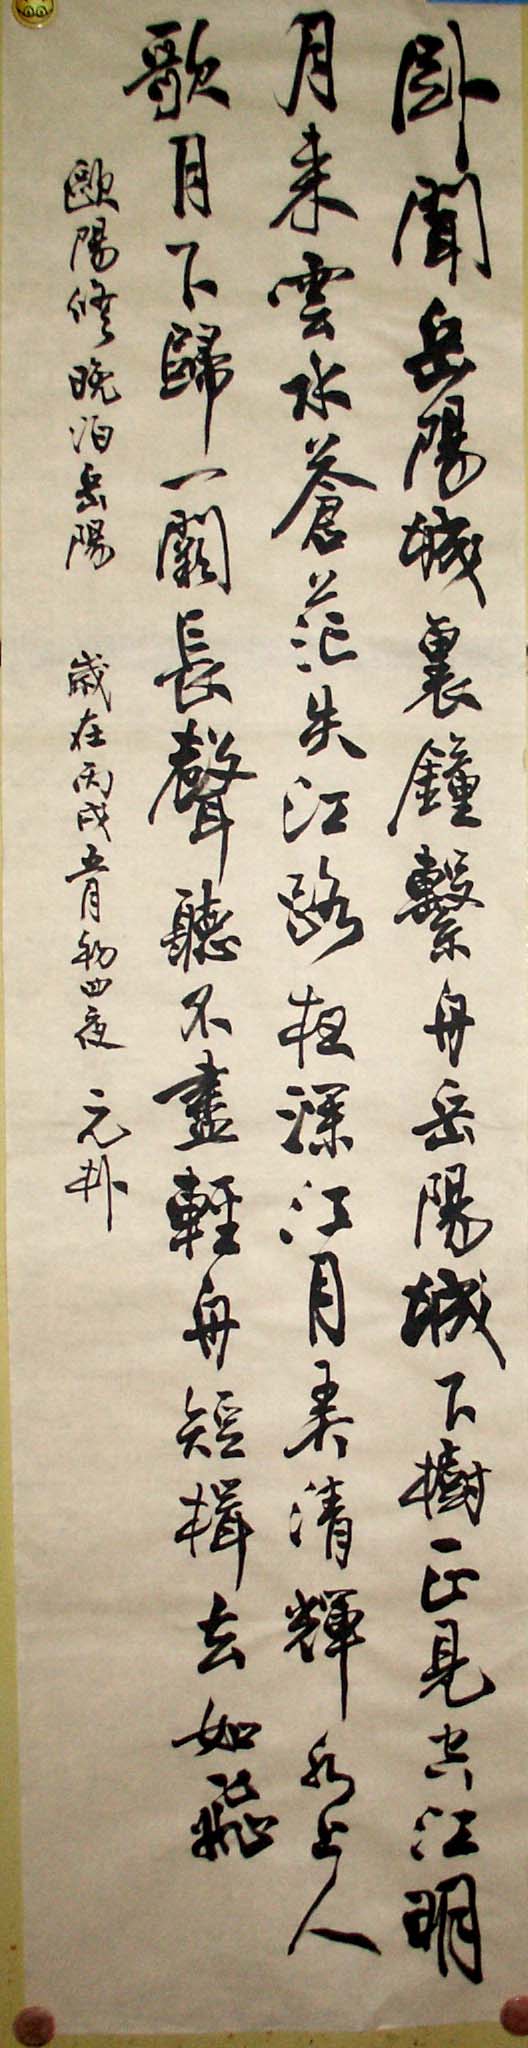 卧聞岳陽城裏鐘繫舟岳陽城下樹正見空江明
月来雲水蒼茫失江路夜深江月弄清輝水上人
歌月下歸一闋長聲聽不盡輕舟短楫去如飛
歐陽修晚泊岳陽
歲在丙戌五月初四夜 元朴